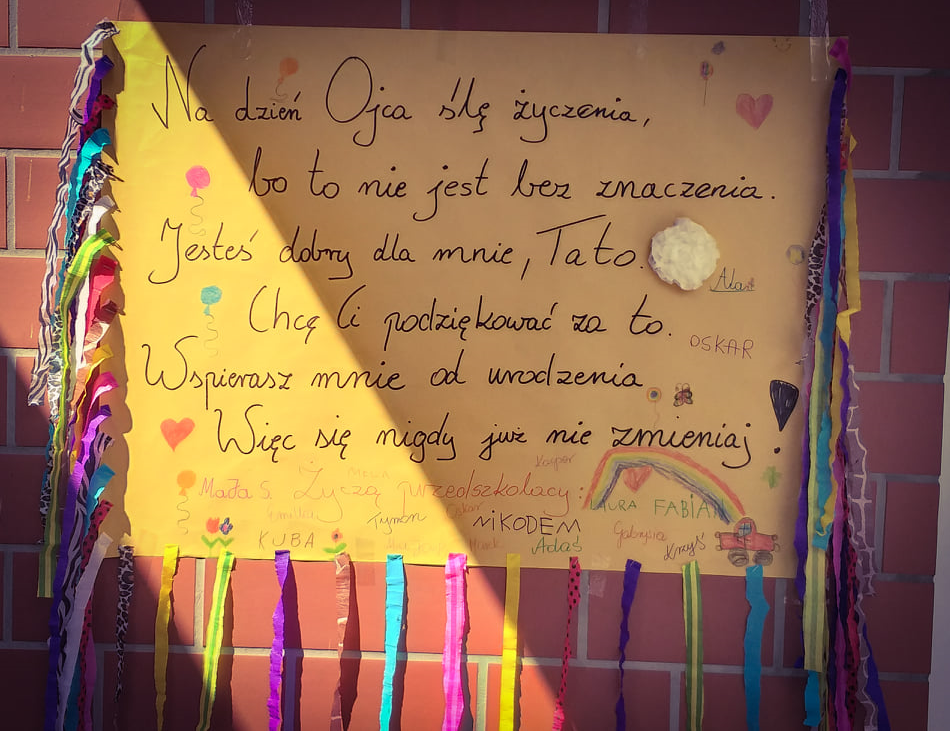 Na dzień Ojca ślę życzenia,
bo to nie jest bez znaczenia.
Jesteś dobry dla mnie, Tato.
Ala
Chcę Ci podziękować za to.
OSKAR
Wspierasz mnie od urodzenia
Więc się nigdy już nie zmieniaj!
Kacper
Maja S. Życzą przedszkolacy:
LAURA FABIAN
Tymon Oskar NIKODEM
KUBA Adaś Gabrysia Krzyś